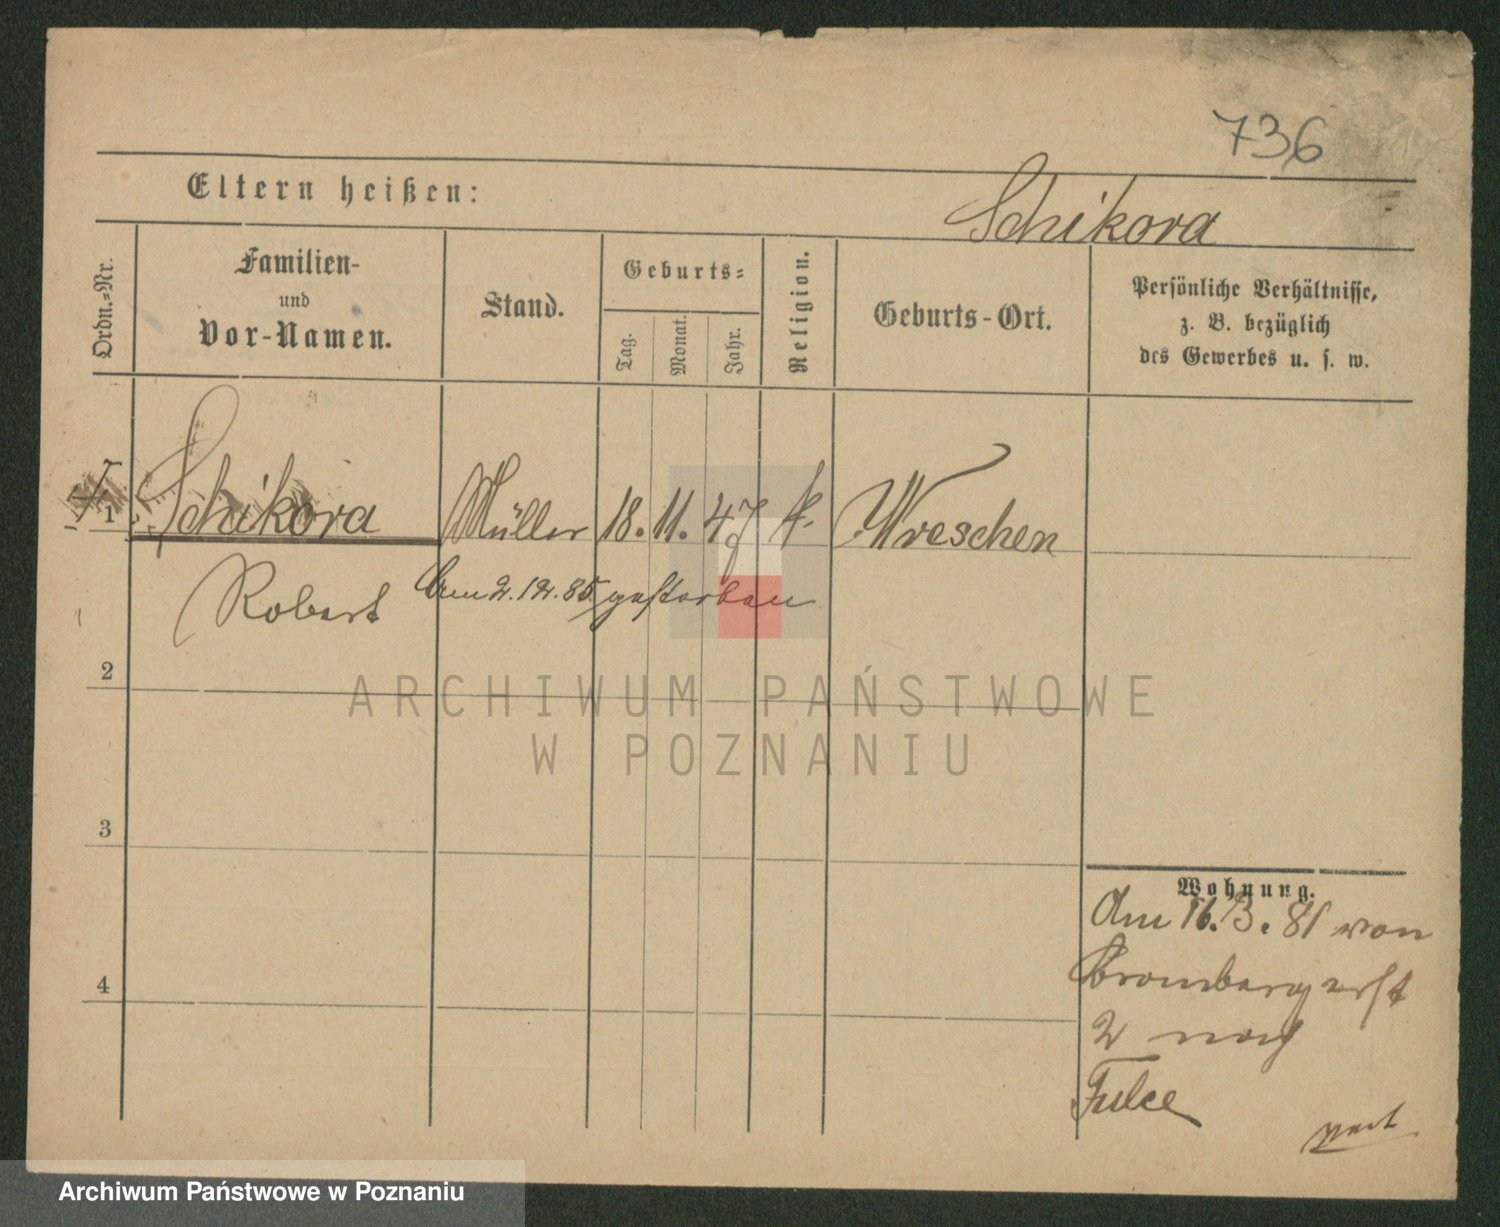 736
Eltern heißen:
Schikora
Ordn.=Nr.
Familien-
und
Vor-Namen.
Stand.
Geburts=
Tag.
Monat.
Jahr.
Religion.
Geburts-Ort.
Persönliche Verhältnisse,
z. B. bezüglich
des Gewerbes u. s. w.
1
Schikora
Müller
18. 11. 47
k.
Wreschen
Robert
Am 2.12.85 gestorben
2
ARCHIWUM PAŃSTWOWE
W POZNANIU
3
Wohnung.
Am 16.3.81 von
Brombergerst
2 nach
Tulce
4
Archiwum Państwowe w Poznaniu